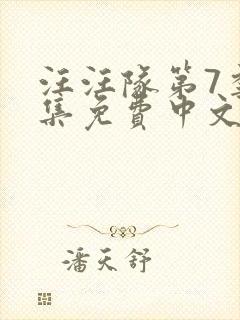 汪汪隊第7季
集免費中文
潘天舒